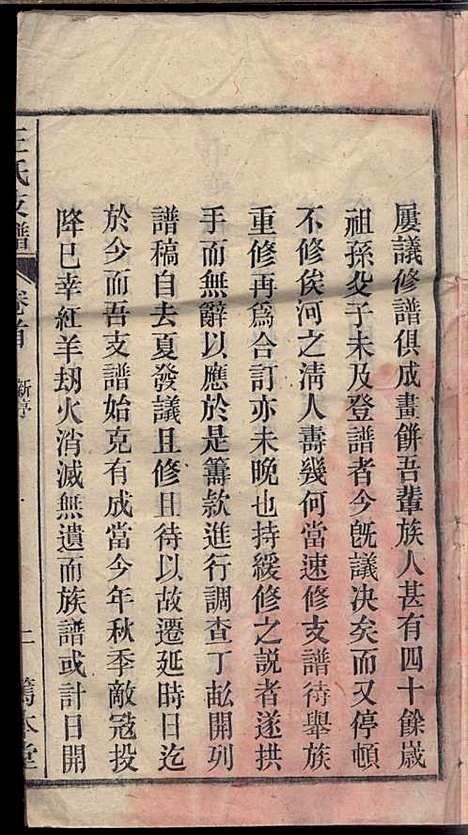 屢議修譜俱成畫餅吾輩族人甚有四十餘歲
祖孫父子未及登譜者今既議決矣而又停頓
不修俟河之淸人壽幾何當速修支譜待舉族
重修再爲合訂亦未晚也持緩修之説者遂拱
手而無辭以應於是籌款進行調查丁彸開列
譜稿自去夏發議且修且待以故遷延時日迄
於今而吾支譜始克有成當今年秋季敵寇投
降巳幸紅羊刼火消滅無遺而族譜或計日開
王氏支譜
卷首
新序
二
篤本堂